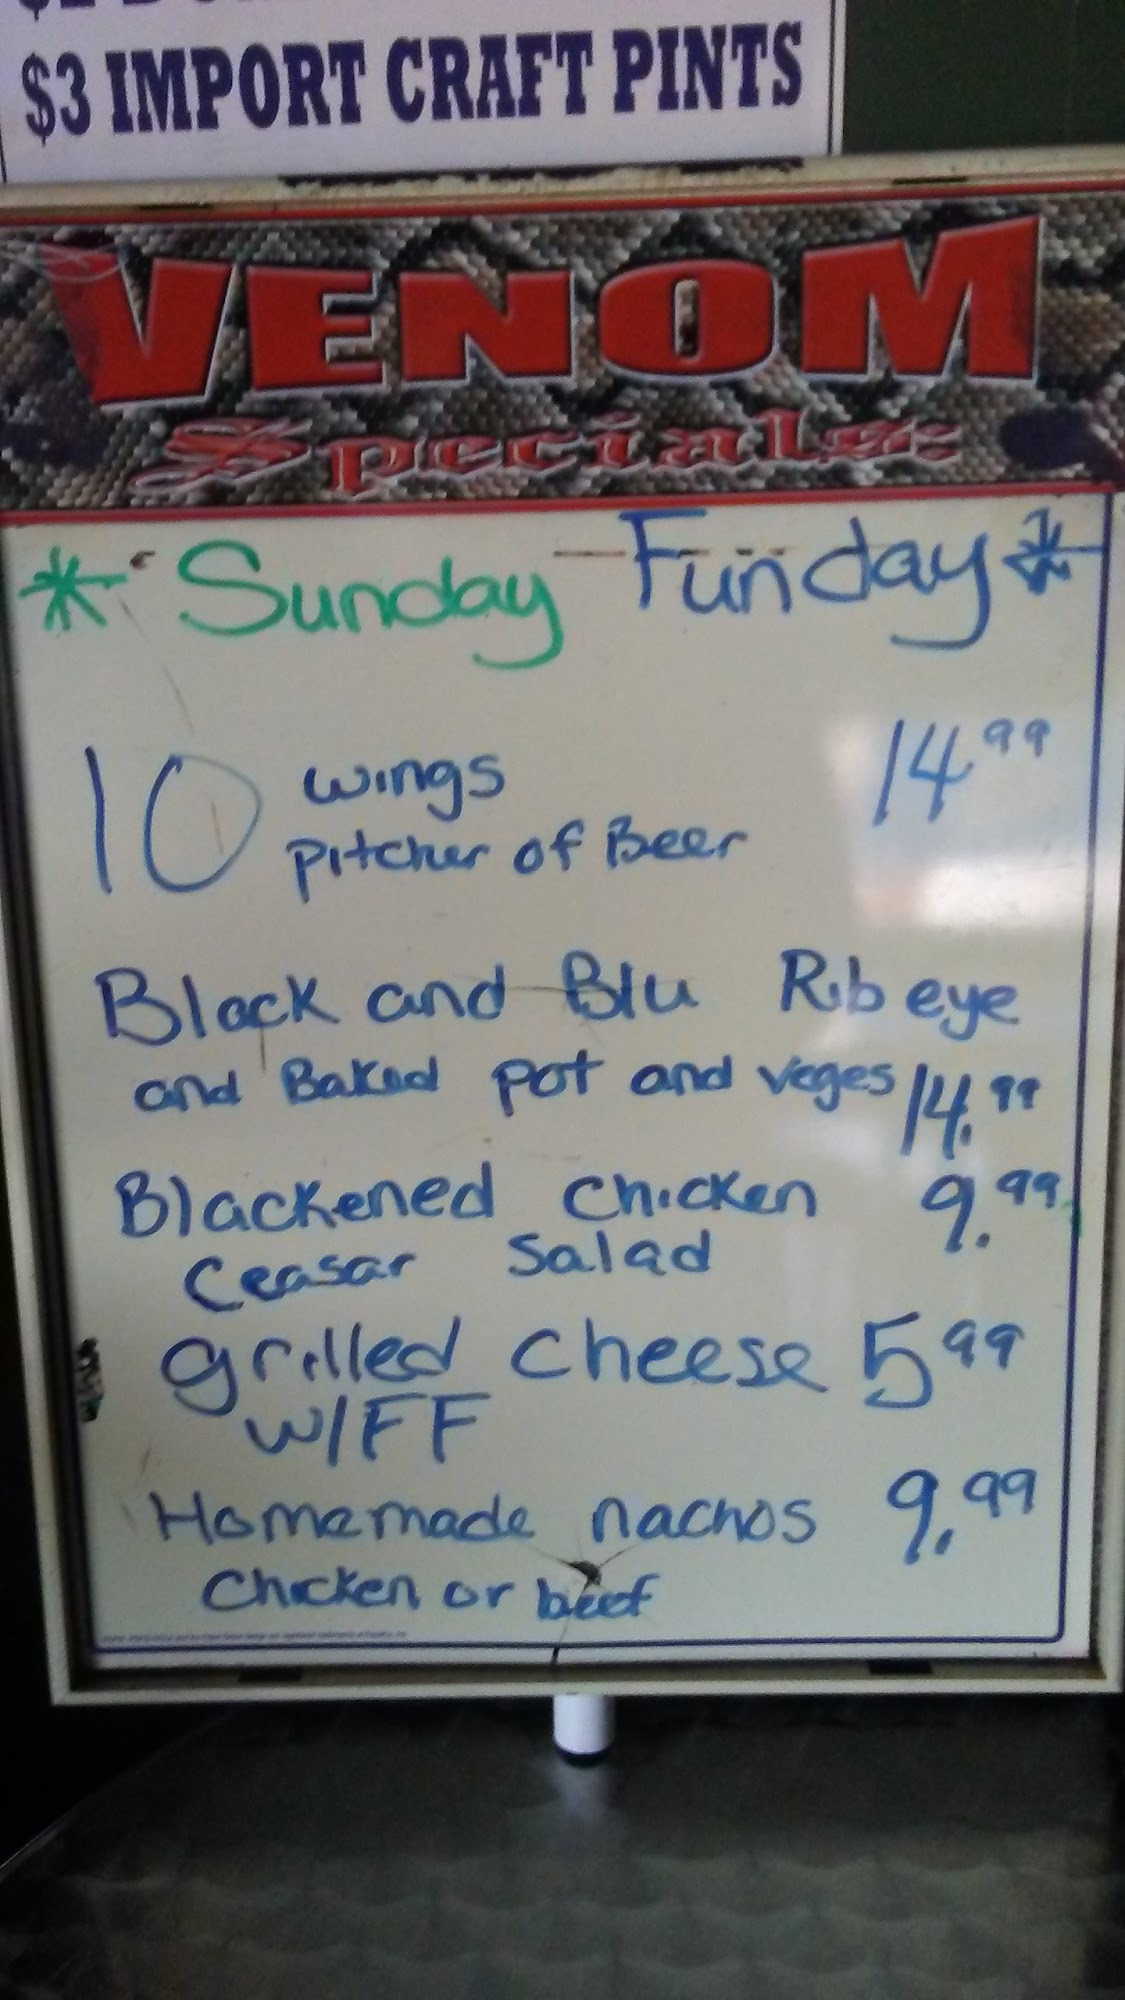 $3 IMPORT CRAFT PINTS
VENOM
Specials:
* Sunday Funday *
10 wings 14 99
pitcher of Beer
Black and Blu Rib eye
and Baked pot and veges 14.99
Blackened Chicken 9.99
Ceasar Salad
grilled cheese 5 99
W/FF
Homemade nachos 9.99
Chicken or beef